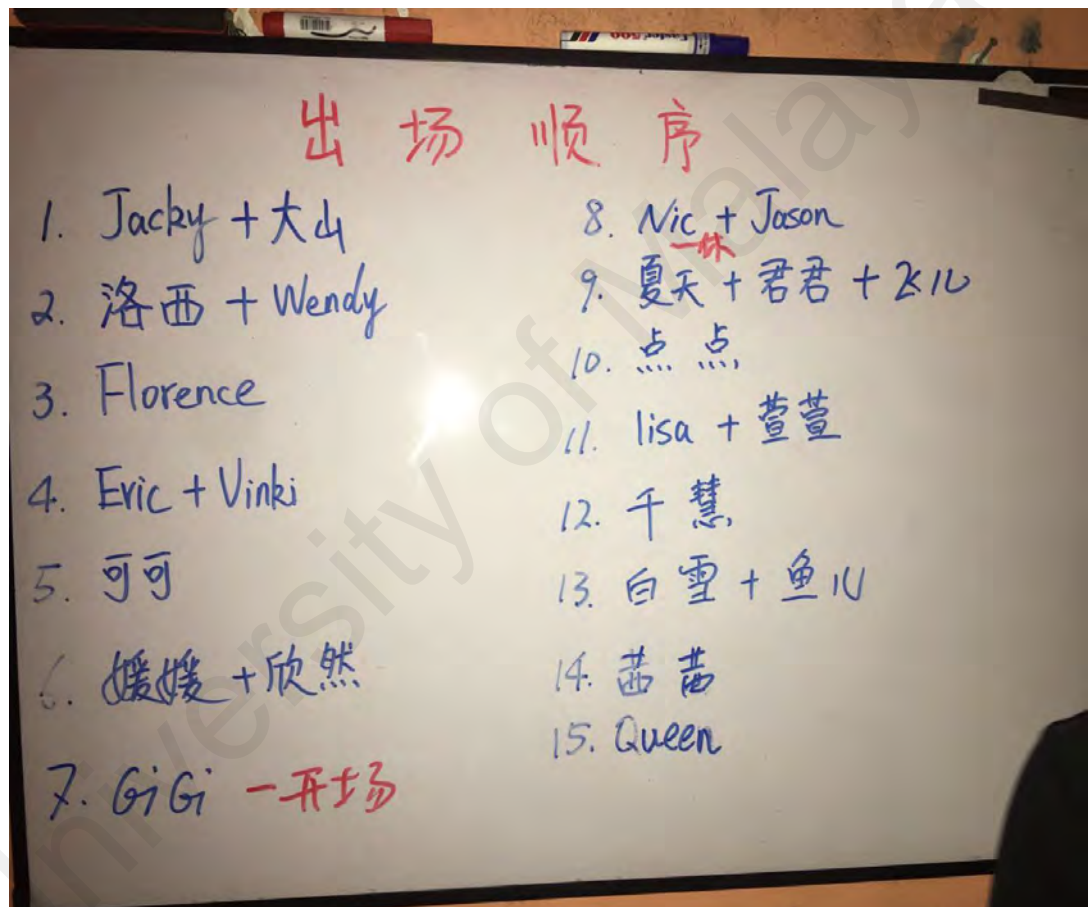 出场顺序
1. Jacky + 大山
2. 洛西 + Wendy
3. Florence
4. Eric + Vinki
5. 可可
6. 媛媛 + 欣然
7. GiGi 一开场
8. Nic + Jason
一休
9. 夏天 + 君君 + 飞儿
10. 点点
11. lisa + 萱萱
12. 千慧
13. 白雪 + 鱼儿
14. 茜茜
15. Queen
University of Malaya